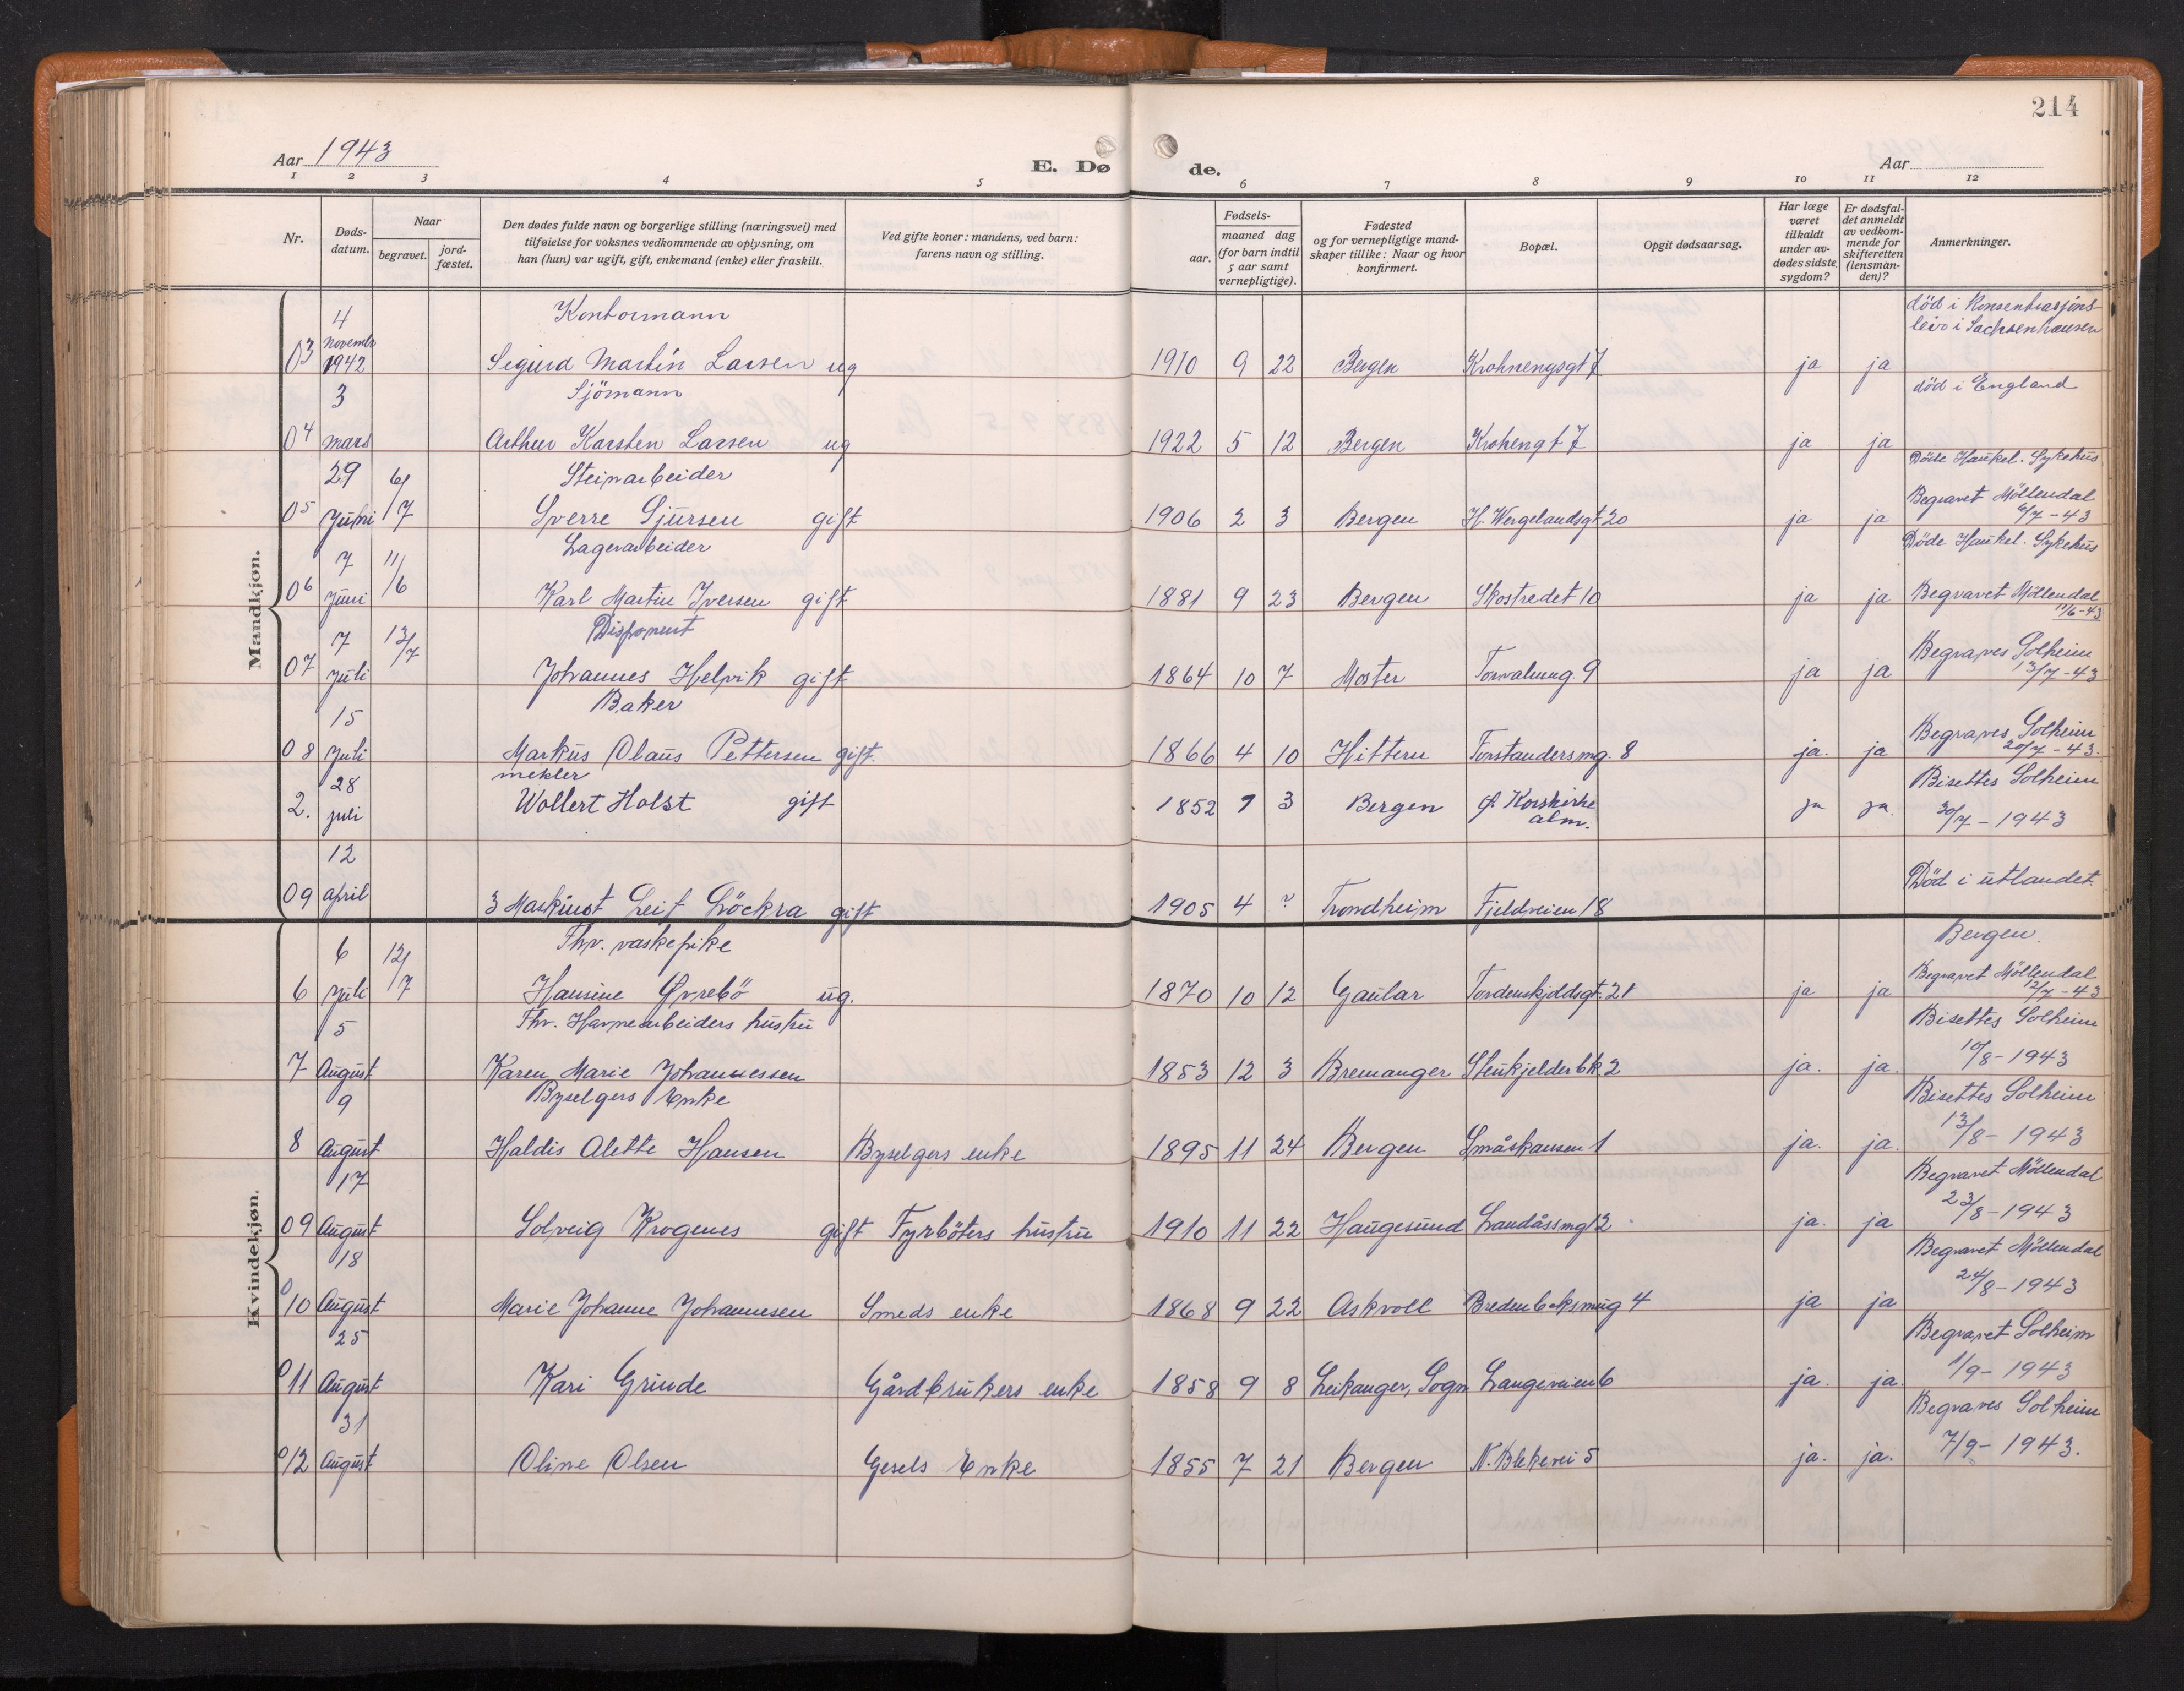 214
Aar 1943
E. Dø
de.
Aar
1 2 3 4 5 6 7 8 9 10 11 12
Nr.
Døds-
datum.
Naar
begravet.
jord-
fæstet.
Den dødes fulde navn og borgerlige stilling (næringsvei) med
tilføielse for voksnes vedkommende av oplysning, om
han (hun) var ugift, gift, enkemand (enke) eller fraskilt.
Ved gifte koner: mandens, ved barn:
farens navn og stilling.
Fødsels-
aar.
maaned dag
(for barn indtil
5 aar samt
vernepligtige).
Fødested
og for vernepligtige mand-
skaper tillike: Naar og hvor
konfirmert.
Bopæl.
Opgit dødsaarsag.
Har læge
været
tilkaldt
under av-
dødes sidste
sygdom?
Er dødsfal-
det anmeldt
av vedkom-
mende for
skifteretten
(lensman-
den)?
Anmerkninger.
Mandkjøn.
4 Kontormann død i Konsentrasjons-
leir i Sachsenhausen
03 novembr 1942 Sigurd Martin Larsen ug 1910 9 22 Bergen Krohnengsgt 7 ja ja
3 Sjömann död i England
04 mars Arthur Karsten Larsen ug 1922 5 12 Bergen Krohengt 7 ja ja
29 6/7 Steinarbeider Döde Haukel. Sykehus
05 Juni Sverre Sjursen gift 1906 2 3 Bergen H. Wergelandsgt 20 ja ja Begravet Möllendal
6/7 - 43
7 11/6 Lagerarbeider Döde Haukel. Sykehus
06 Juni Karl Martin Iversen gift 1881 9 23 Bergen Skostredet 10 ja ja Begravet Möllendal
11/6-43
7 13/7 Disponent
07 Juli Johannes Helvik gift 1864 10 7 Moster 9 ja ja Begraves Solheim
13/7-43
15 Baker
08 Juli Markus Olaus Pettersen gift. 1866 4 10 Hitteru Forstandersmg. 8 ja. ja Begraves Solheim
20/7-43.
28 mekler Bisettes Solheim
2. juli Wollert Holst gift 1852 7 3 Bergen Ø. Korskirke
alm. ja ja. 30/7 - 1943
12
09 april 3 Maskinst Leif Löckra gift 1905 4 ? Trondheim Fjeldveien 18 Död i utlandet.
Kvindekjøn.
6 12/7 Fhv. vaskepike Bergen.
6 Juli Hansine Øvrebö ug. 1870 10 12 Gaular Tordenskjoldsgt. 21 ja ja Begravet Möllendal
12/7-43
5 Fhv. Havnearbeiders hustru Bisettes Solheim
7 August Karen Marie Johannessen 1853 12 3 Bremanger Stenkjelderbk 2 ja. ja. 10/8-1943
9 Byselgers Enke Bisettes Solheim
8 August Haldis Alette Hansen Byselgers enke 1895 11 24 Bergen Småskansen 1 ja. ja. 13/8- 1943
17 Begravet Möllendal
09 August Solveig Krogenes gift Fyrböters hustru 1910 11 22 Haugesund Landåssmg 12 ja. ja 23/8-1943
18 Begravet Möllendal
010 August Marie Johanne Johannesen Smeds enke 1868 9 22 Askvoll Bredenbeksmug 4 ja ja 24/8-1943
25 Begravet Solheim
011 August Kari Grinde Gårdbrukers enke 1858 9 8 Leikanger, Sogn Langeveien 6 ja. ja. 1/9-1943
31 Begraves Solheim
012 August Oline Olsen Gesels Enke 1855 7 21 Bergen N. Blekevei 5 ja. ja. 7/9- 1943.